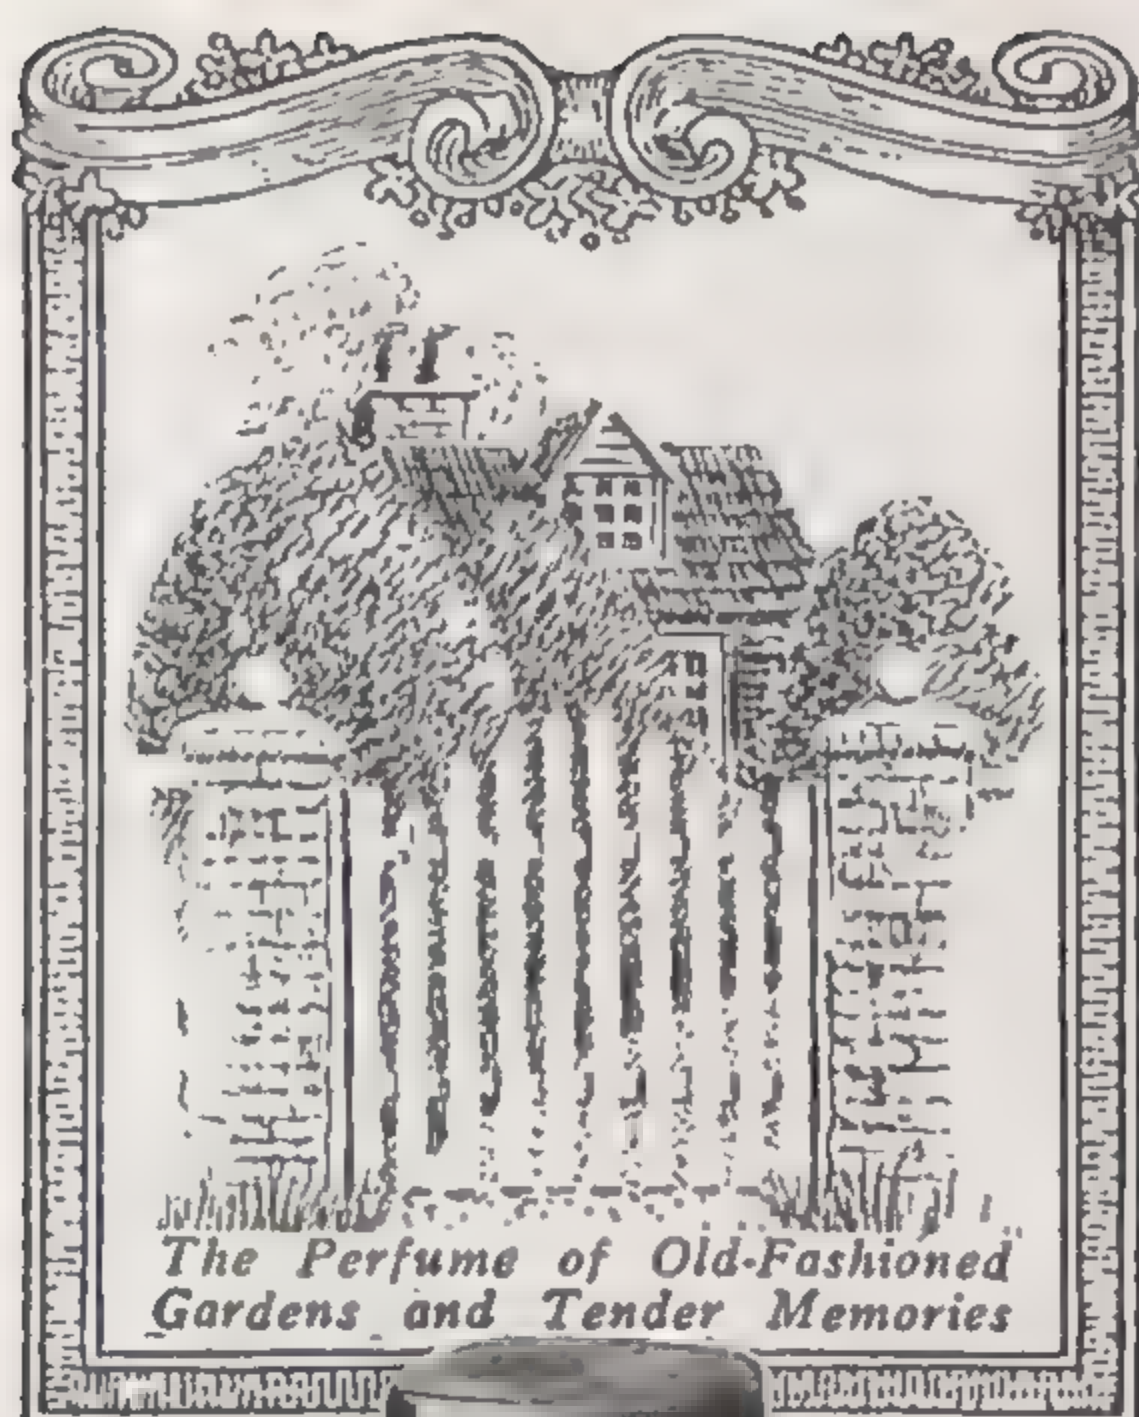 The Perfume of Old-Fashioned
Gardens and Tender Memories